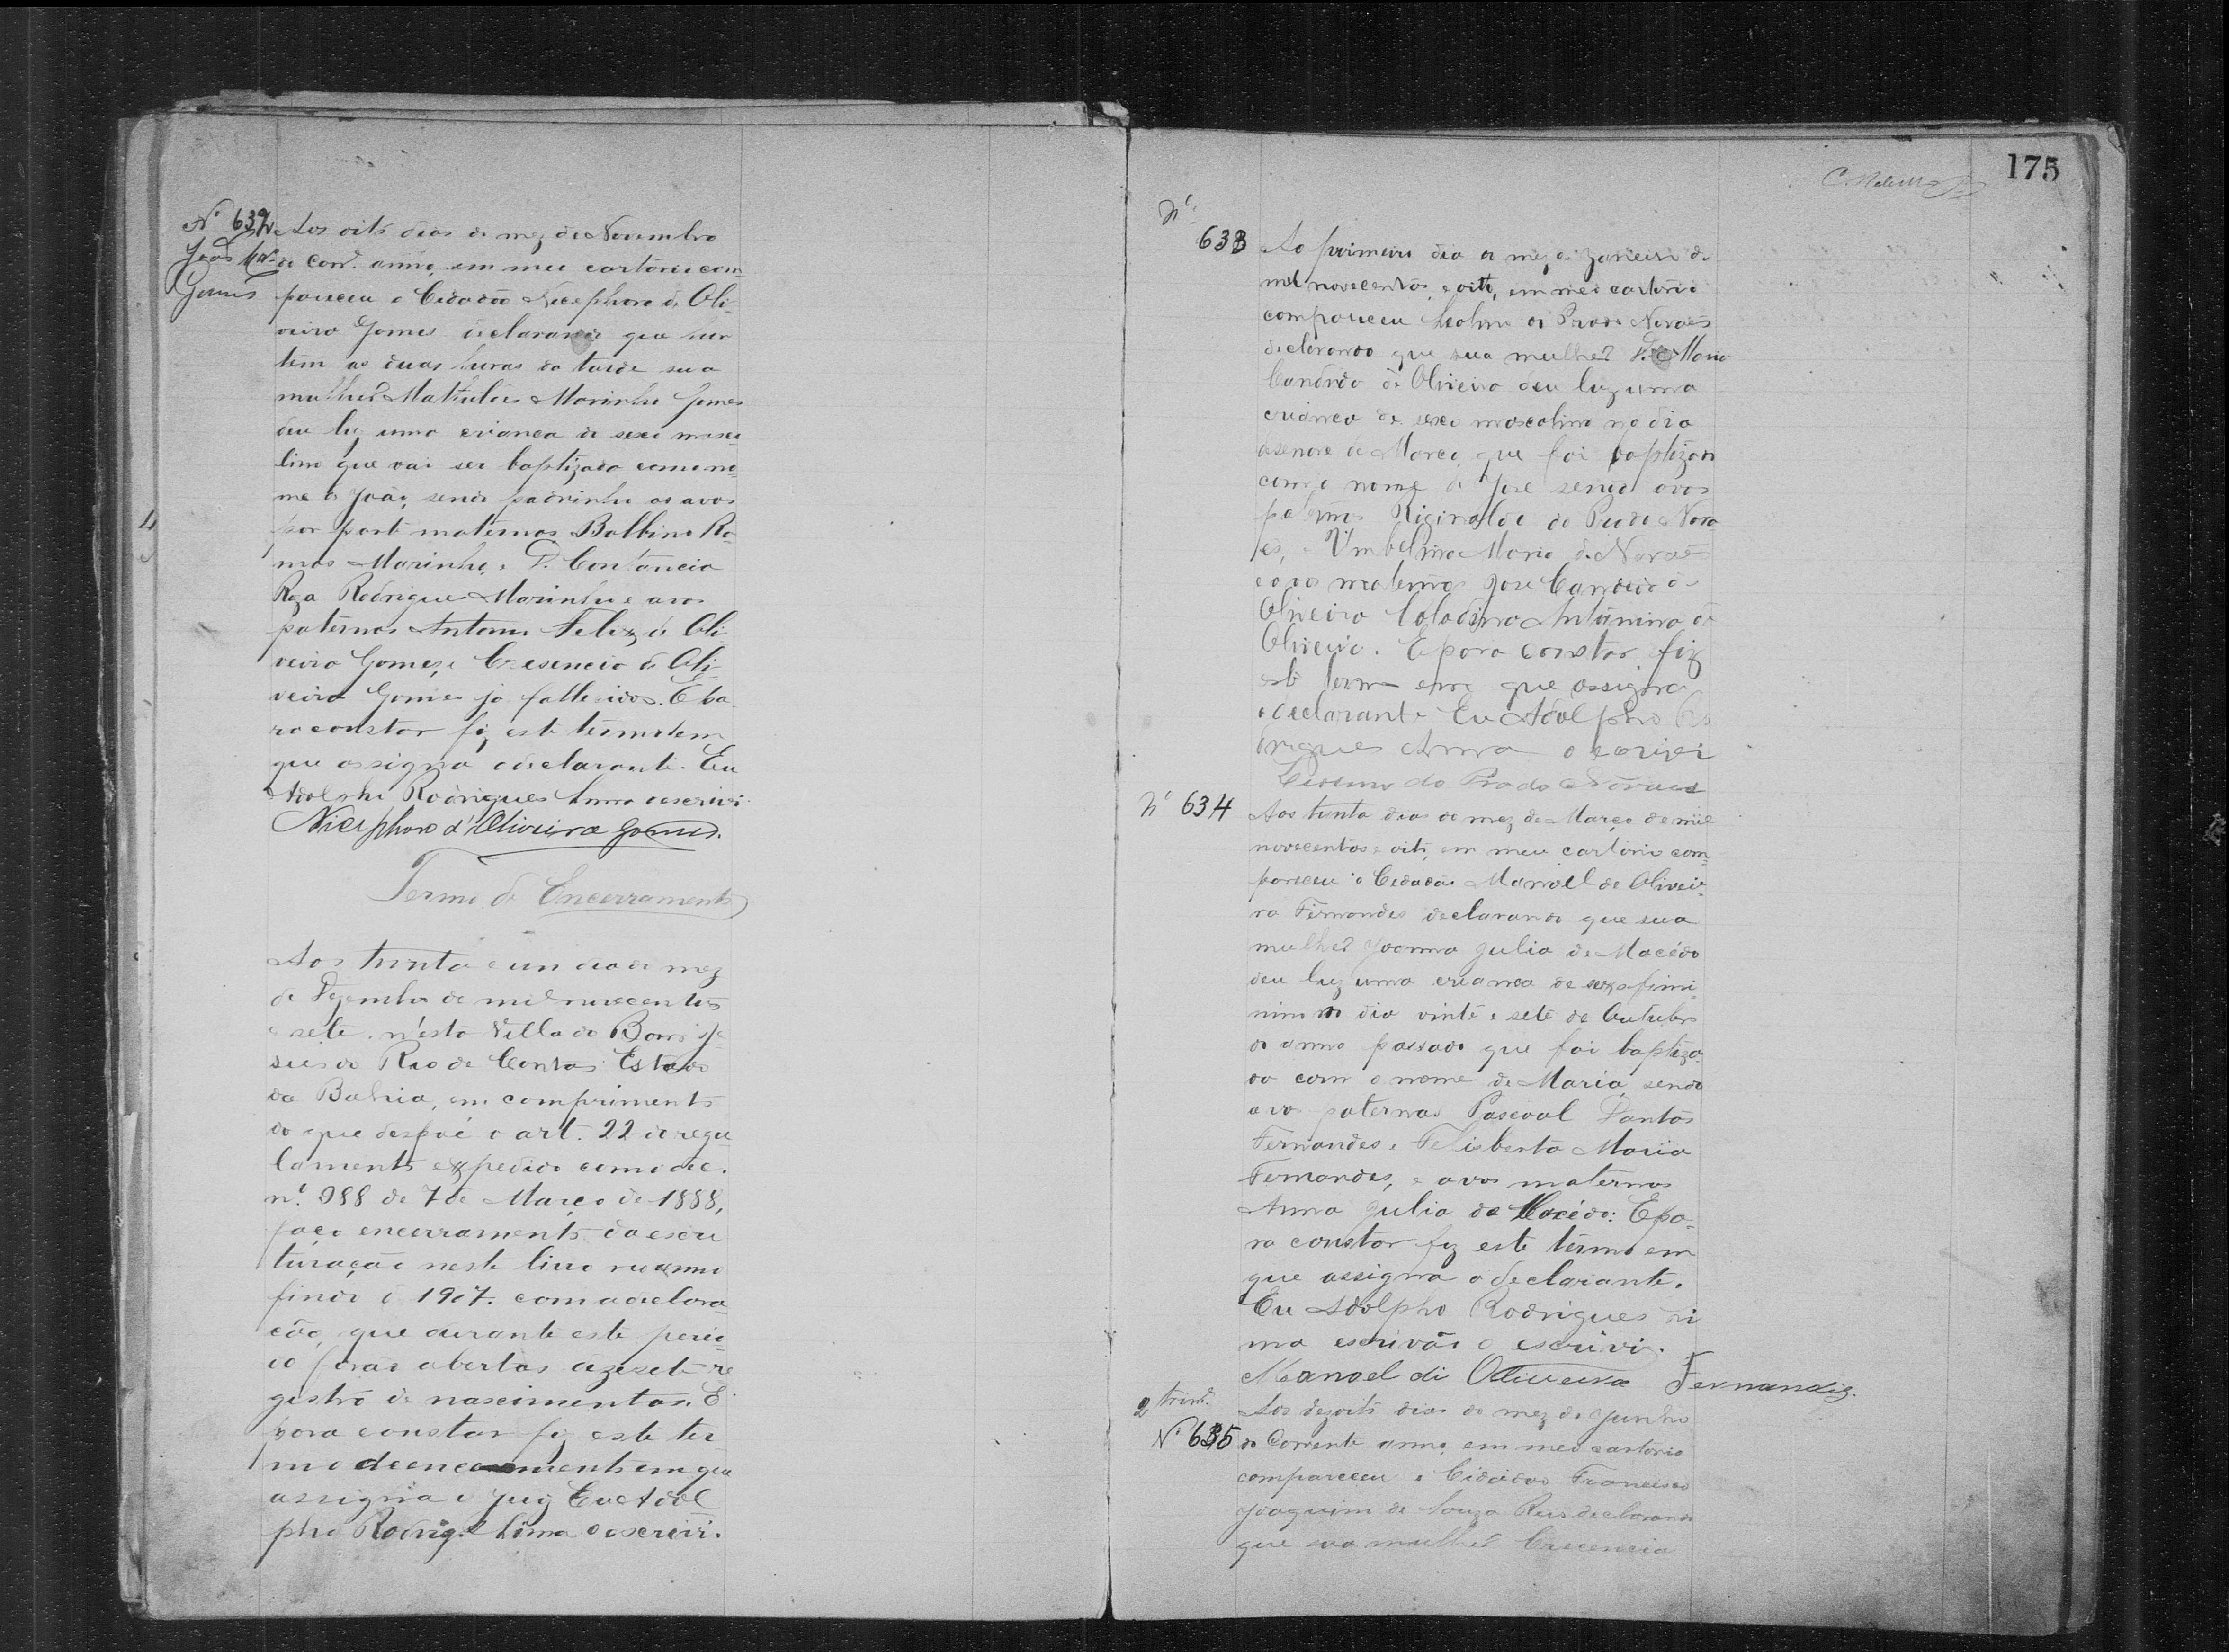 Nº 632 Aos oito dias do mez de Novembro
João Mar.º do corr.e anno, em meu cartorio com-
Gomes pareceu o Cidadão Nicephoro de Oli-
veira Gomes declarando que
tem as duas horas da tarde sua
mulher Mathildes Marinho Gomes
deu luz uma criança de sexo mascu-
lino que vai ser baptizado com o no-
me de João, sendo padrinho os avos
por parte maternos Balbino Ra-
mos Marinho e D. Constancia
Roza Rodrigues Marinho e avos
paternos Antonio Feliz de Oli-
veira Gomes, e Cresencia de Oli-
veira Gomes ja fallecidos. E pa-
ra constar fiz este termo em
que assigna o declarante. Eu
Adolpho Rodrigues Lima o escrivi.
Nicephoro d'Oliveira Gomes.
Termo de Encerramento
Aos trinta e um dia do mez
de Dezembro de mil novecentos
e sete, n'esta Villa do Bom Je-
sus do Rio de Contas Estado
da Bahia, em comprimento
do que despoe o art. 22 do regu-
lamento expedido com o dec.
nº. 988 de 7 de Março de 1888,
faço encerramento da escri-
turação neste livro no anno
findo de 1907. com a declara-
ção, que durante este perio-
do forão abertos dezesete re-
gistro de nascimentos. E
para constar fiz este ter-
mo de encerramento em que
assigna o Juiz Eu Adol-
pho Rodrig.s Lima o escrevi.
175
Nº
633 Ao primeiro dia do mez de Janeiro de
mil novecentos e oito, em meu cartorio
compareceu do Prado Novaes
declarando que sua mulher D. Maria
Candida de Oliveira deu luz uma
criança de sexo mascolino no dia
de Março, que foi baptizado
com o nome de José sendo avos
paternos Riginaldo do Prado Nova-
es, e Umbelina Maria de Novaes
e avos maternos José Candido de
Oliveira Antonina de
Oliveira. E para constar fiz
este termo em que assigna
o declarante Eu Adolpho Ro-
drigues Lima o escrivi
do Prado Novaes
Nº 634 Aos trinta dias do mez de Março de mil
novecentos e oito, em meu cartorio com-
pareceu o Cidadão Manoel de Olivei-
ra Fernandes declarando que sua
mulher Joanna Julia de Macêdo
deu luz uma criança de sexo fimi-
nino no dia vinte e sete de Outubro
do anno passado que foi baptiza-
do com o nome de Maria, sendo
avos paternos Pascoal Dantas
Fernandes e Felisberta Maria
Fernandes, e avos maternos
Anna Julia de Macêdo: E pa-
ra constar fiz este termo em
que assigna o declarante.
Eu Adolpho Rodrigues Li-
ma escrivão o escrivi.
Manoel di Oliveira Fernandiz.
2 trim.
Aos dezoito dias do mez de Junho
Nº 635 do Corrente anno, em meu cartorio
compareceu o Cidadão Francisco
Joaquim de Souza Reis declarando
que sua mulher Crescencia